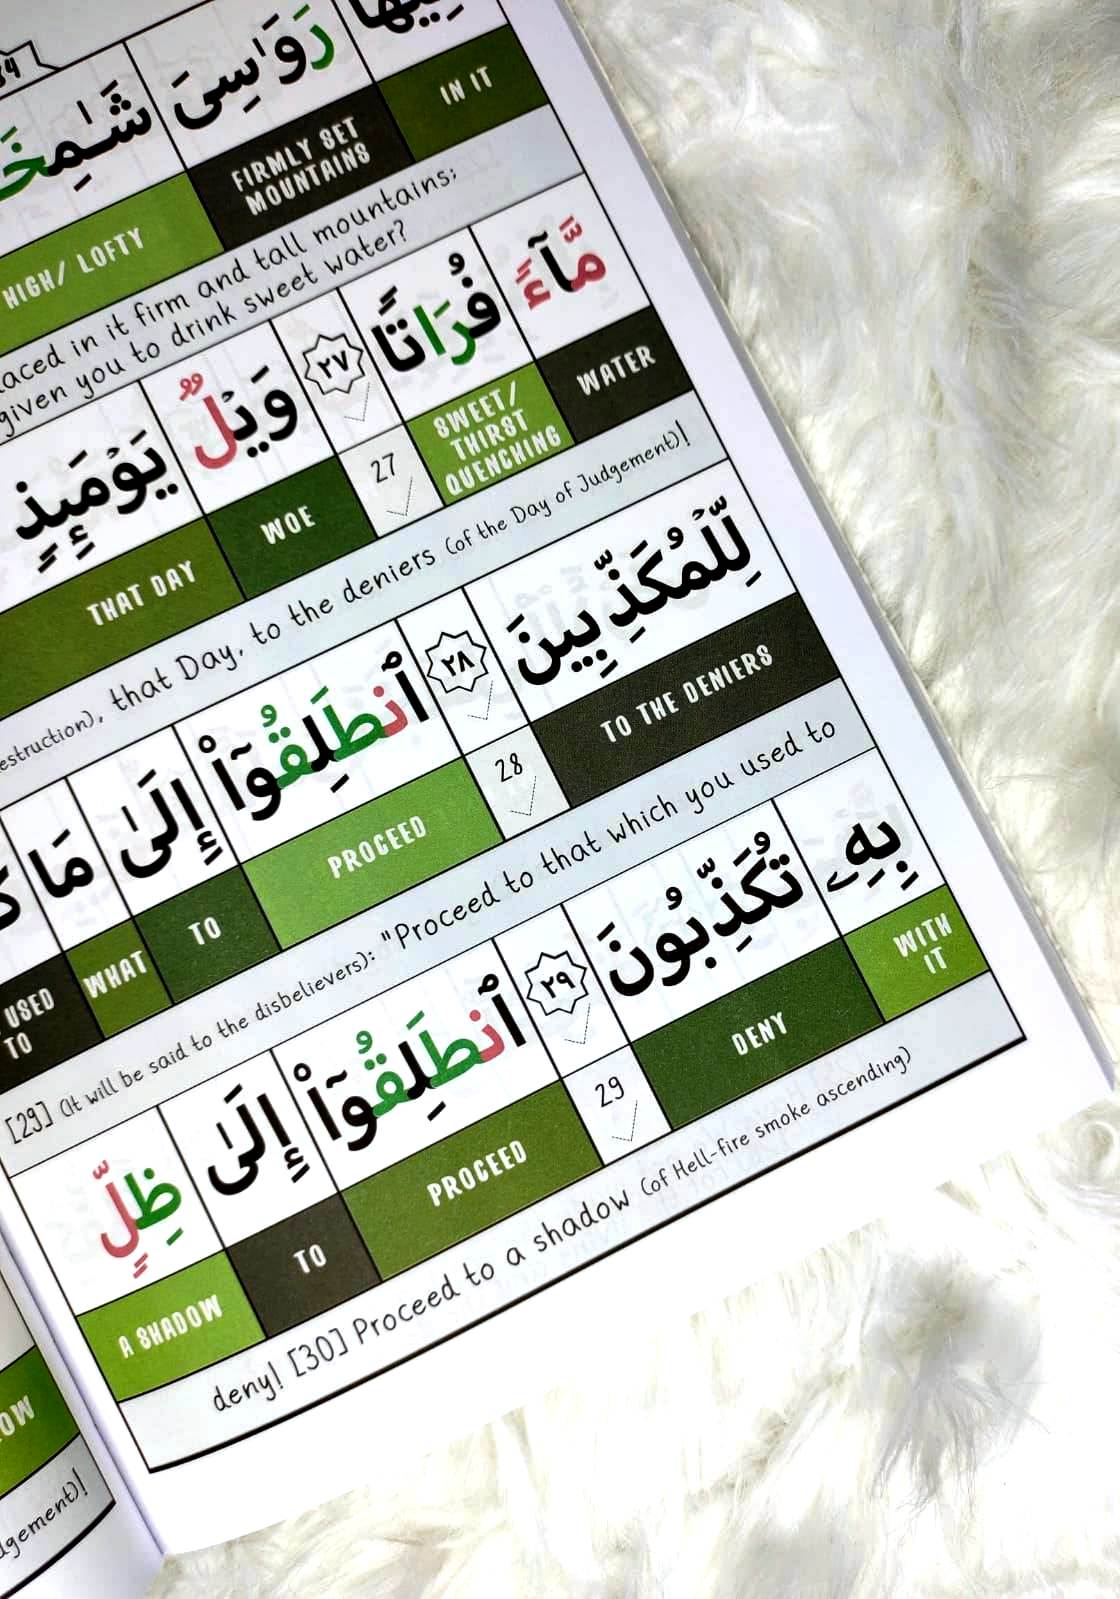 رَوَٰسِىَ
IN IT
FIRMLY SET
MOUNTAINS
HIGH/ LOFTY
in it firm and tall mountains;
given you to drink sweet water?
مَّآءً فُرَاتًا ٢٧ وَيْلٌ يَوْمَئِذٍ
WATER
SWEET/
THIRST
QUENCHING
27
WOE
THAT DAY
that Day, to the deniers (of the Day of Judgement)!
لِّلْمُكَذِّبِينَ ٢٨ ٱنطَلِقُوٓا۟ إِلَىٰ مَا
TO THE DENIERS
28
PROCEED
TO
WHAT
USED
TO
[29] (It will be said to the disbelievers): "Proceed to that which you used to
بِهِۦ تُكَذِّبُونَ ٢٩ ٱنطَلِقُوٓا۟ إِلَىٰ ظِلٍّ
WITH
IT
DENY
29
PROCEED
TO
A SHADOW
deny! [30] Proceed to a shadow (of Hell-fire smoke ascending)